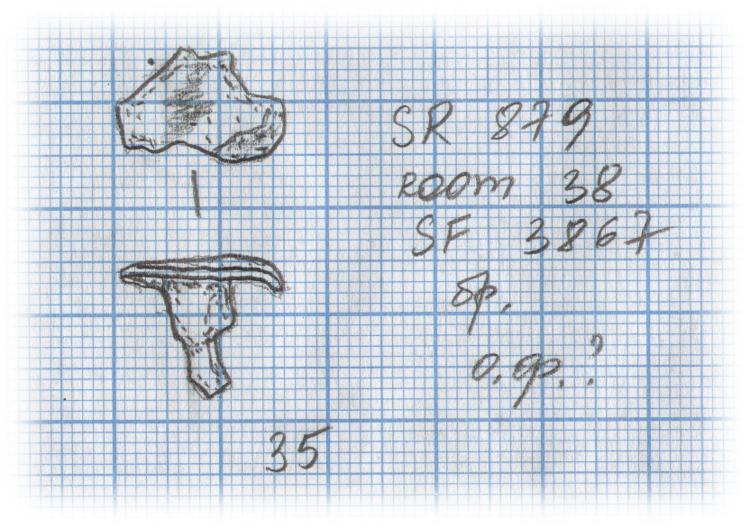 SR 879
ROOM 38
SF 3867
бр.
о.ф.?
35